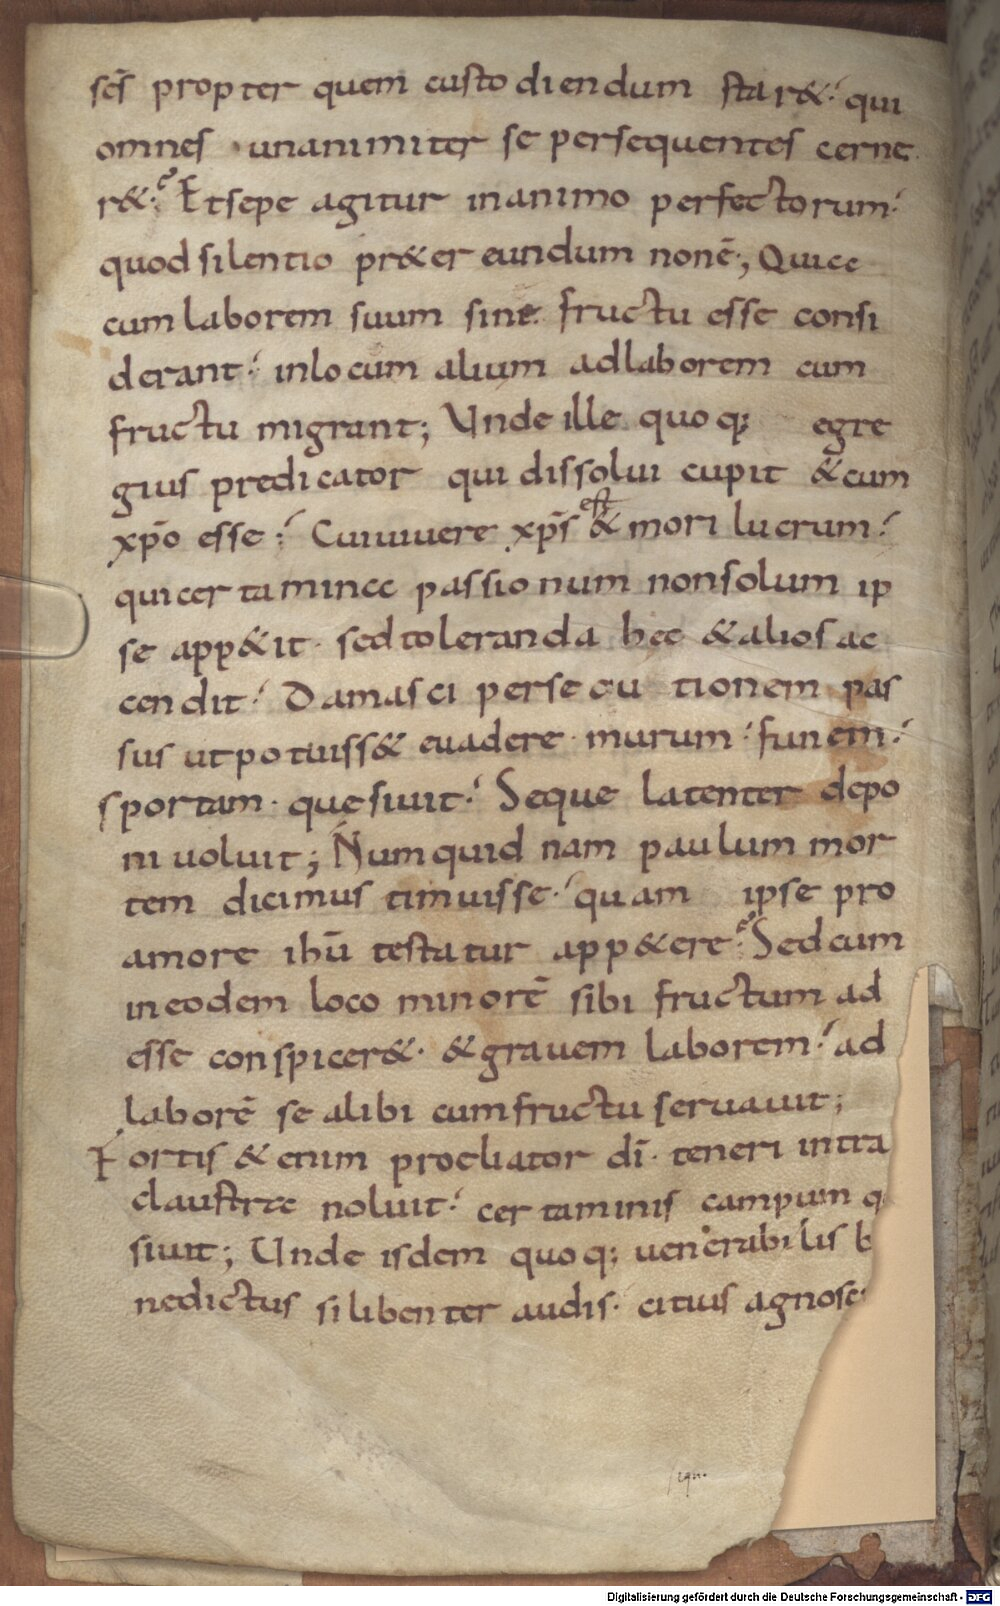 scs̄ propter quem custodiendum star&· qui
omnes unanimiter se persequentes cerne
r&·? Et sepe agitur in animo perfectorum·
quod silentio pr&ereundum non ē; Qui cc
cum laborem suum sine fructu esse consi
derant· in locum alium ad laborem cum
fructu migrant; Unde ille quoq; egre
gius predicator qui dissolui cupit & cum
xp̄o esse· Cui uiuere xp̄s est & mori lucrum·
qui certamincc passionum non solum ip
se app&iit· sed toleranda hec & alios ac
cendit· Damasci persecutionem pas
sus ut potuiss& euadere· murum· funem·
sportam· quesiuit· Seque latenter depo
ni uoluit; Numquidnam paulum mor
tem dicimus timuisse· quam ipse pro
amore ihū testatur app&ere? Sed cum
in eodem loco minorē sibi fructum ad
esse conspicer&· & grauem laborem· ad
laborē se alibi cum fructu seruauit;
Fortis & enim procliator dī· teneri intra
claustrcc noluit· certaminis campum q
siuit; Unde isdem quoq; uenerabilis b
nedictus si libenter audis· citius agnosc
sequ.
Digitalisierung gefördert durch die Deutsche Forschungsgemeinschaft - DFG